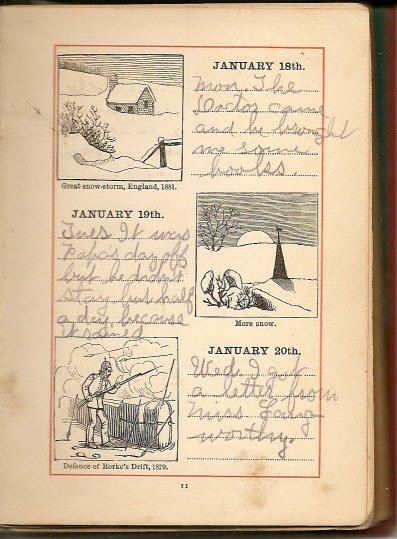 JANUARY 18th.
Mon. The
Doctor came
and he brought
me some
books.
Great snow-storm, England, 1881.
JANUARY 19th.
Tues It was
Papa's day off
but he didn't
stay but half
a day because
it rained
More snow.
JANUARY 20th.
Wed. I got
a letter from
Miss Lang-
worthy.
Defence of Rorke's Drift, 1879.
11